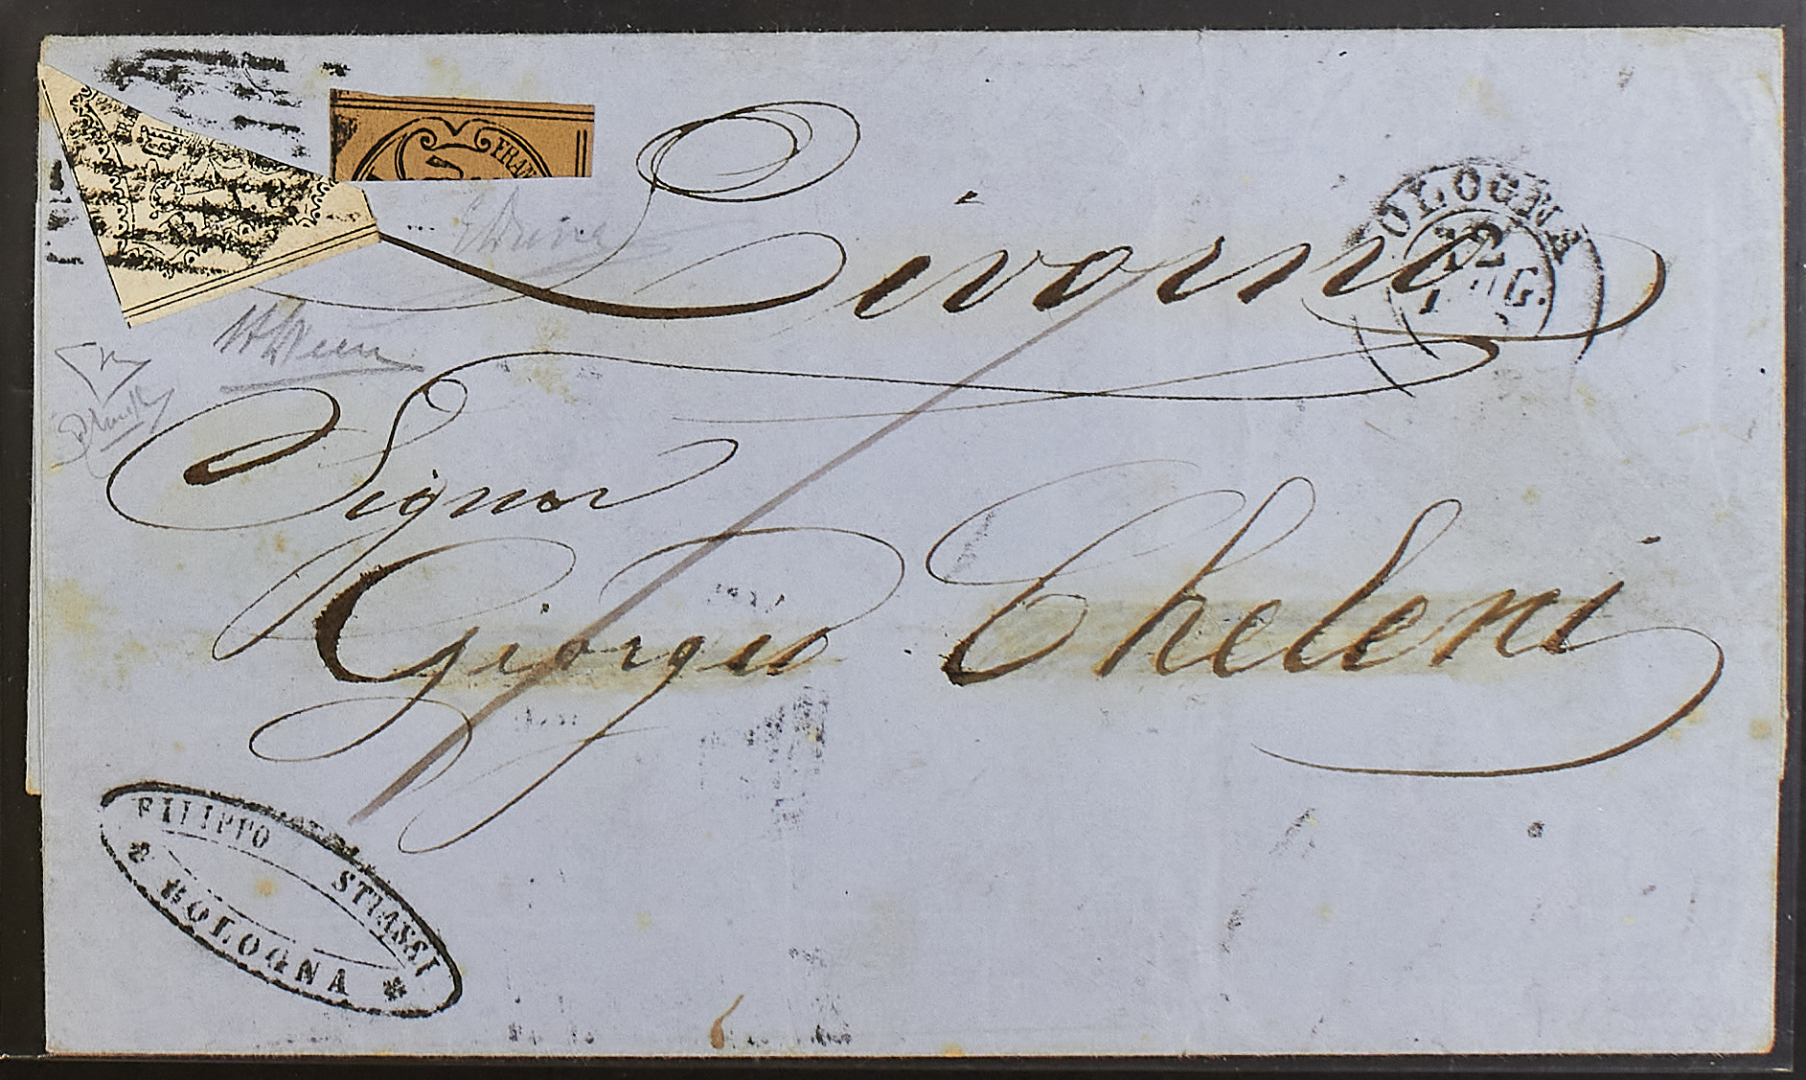 FRAN
Livorno
BOLOGNA
12
Signor
Giorgio Cheleni
FILIPPO STIASSI
BOLOGNA